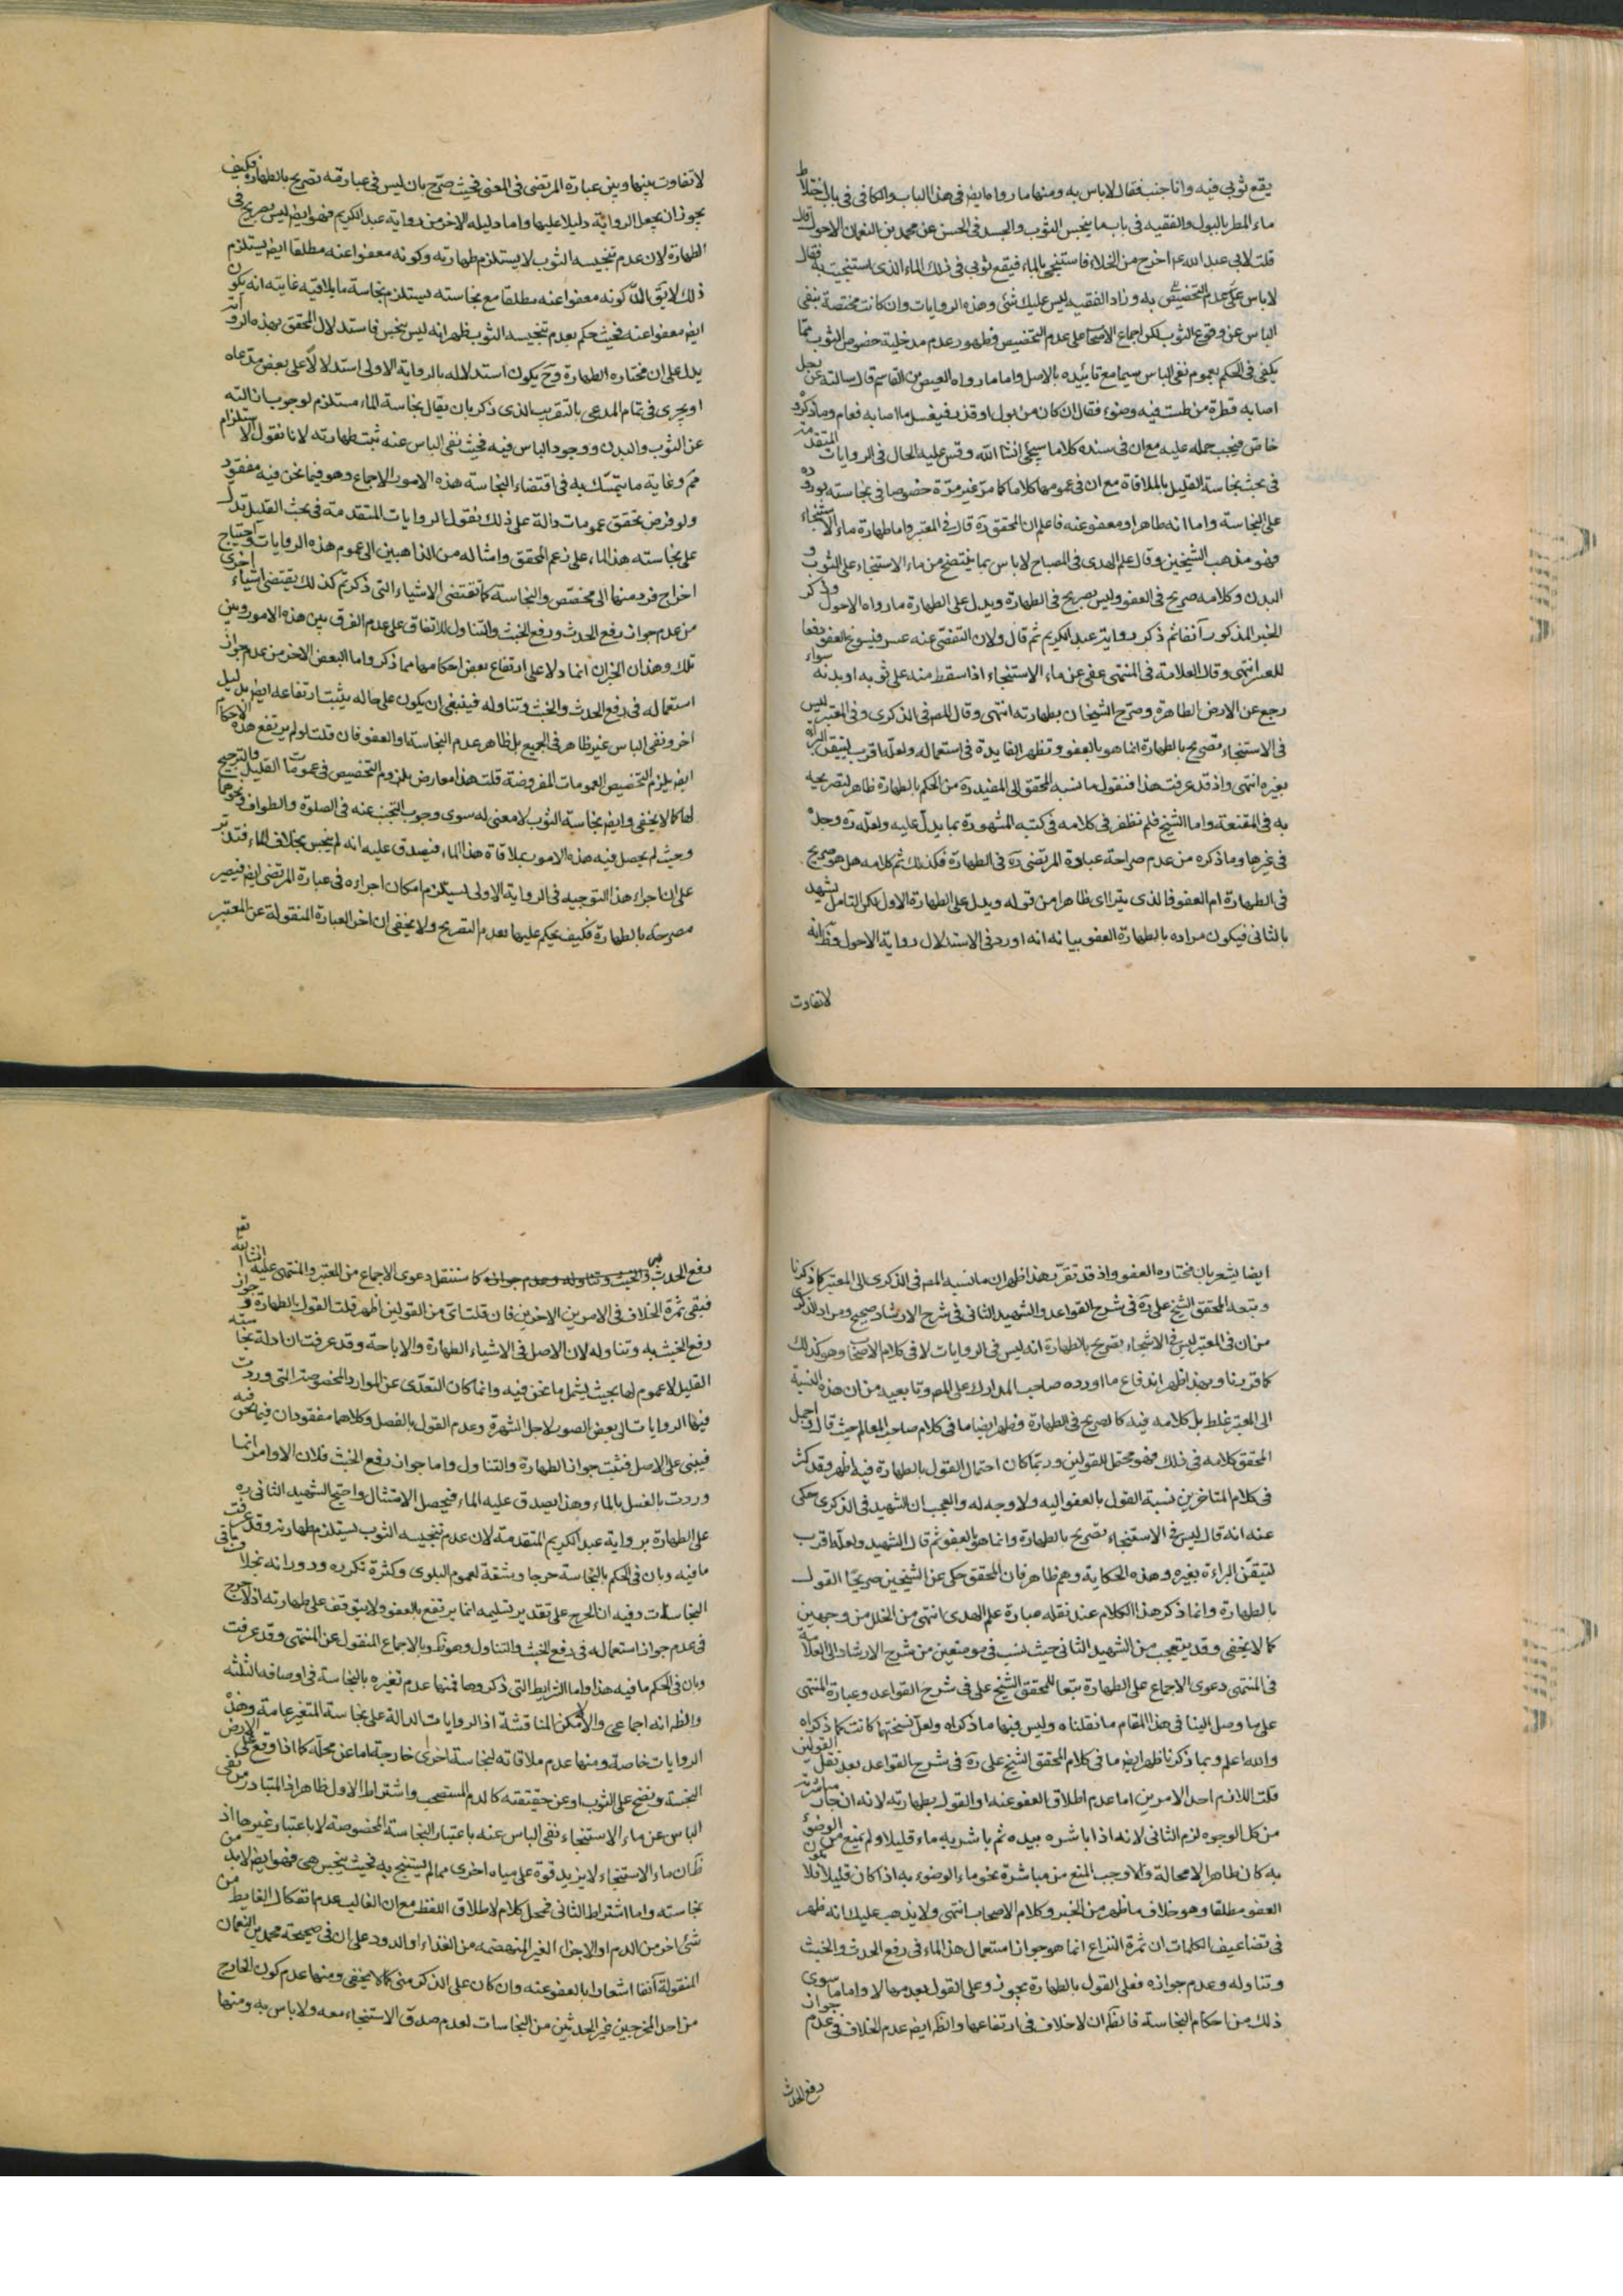 يقع ثوبي فيه وانا جنب فقال لا باس به ومنها ما رواه ايض في هذا الباب والكافي في باب اختلاط
ماء المطر بالبول والفقيه في باب ما ينجس الثوب والجسد في الحسن عن محمد بن النعمان الاحول قال
قلت لابي عبد الله ع اخرج من الخلاء فاستنجي بالماء فيقع ثوبي في ذلك الماء الذي استنجيت به فقال
لا باس به وزاد الفقيه ليس عليك شئ وهذه الروايات وان كانت مختصة بنفي
الباس عن وقوع الثوب لكن اجماع الاصحاب على عدم التخصيص وظهور عدم مدخلية خصوص الثوب مما
يكفي في الحكم بعموم نفي الباس سيما مع تاييده بالاصل واما ما رواه العيص بن القاسم قال سالته عن رجل
اصابه قطرة من طست فيه وضوء فقال ان كان من بول او قذر فيغسل ما اصابه فعام وما ذكر
خاص فيجب حمله عليه مع ان في سنده كلاما سيجئ انشا الله وقس عليه الحال في الروايات المتقدمة
في بحث نجاسة القليل بالملاقاة مع ان في عمومها كلاما كما مر غير مرة خصوصا في نجاسته بوروده
على النجاسة واما انه طاهر او معفو عنه فاعلم ان المحقق ره قال في المعتبر واما طهارة ماء الاستنجاء
فهو مذهب الشيخين وقال علم الهدى في المصباح لا باس بما ينتضح من ماء الاستنجاء على الثوب و
البدن وكلامه صريح في العفو وليس بصريح في الطهارة ويدل على الطهارة ما رواه الاحول وذكر
الخبر المذكور آنفا ثم ذكر رواية عبد الكريم ثم قال ولان التفصي عنه عسر فيسوغ العفو دفعا
للعسر انتهى وقال العلامة في المنتهى عفي عن ماء الاستنجاء اذا سقط منه على ثوبه او بدنه سواء
رجع عن الارض الطاهرة وصرح الشيخان بطهارته انتهى وقال المص في الذكرى وفي المعتبر ليس
في الاستنجاء تصريح بالطهارة انما هو بالعفو وتظهر الفايدة في استعماله ولعله اقرب لتيقن البراءة
بغيره انتهى واذ قد عرفت هذا فنقول ما نسبه المحقق الى المفيد ره من الحكم بالطهارة ظاهر لتصريحه
به في المقنعة واما الشيخ فلم نظفر في كلامه في كتبه المشهورة بما يدل عليه ولعله ره وجده
في غيرها وما ذكره من عدم صراحة عبارة المرتضى ره في الطهارة فكذلك ثم كلامه هل هو صريح
في الطهارة ام العفو فالذي يتراآى ظاهرا من قوله ويدل على الطهارة الاول لكن التامل يشهد
بالثاني فيكون مراده بالطهارة العفو بيانه انه اورد في الاستدلال رواية الاحول وظ انه
لا تفاوت
لا تفاوت بينها وبين عبارة المرتضى في المعنى فحيث صرح بان ليس في عبارته تصريح بالطهارة فكيف
يجوز ان يجعل الرواية دليلا عليها واما دليله الاخر من رواية عبد الكريم فهو ايض ليس بصريح في
الطهارة لان عدم تنجيسه الثوب لا يستلزم طهارته وكونه معفوا عنه مطلقا ايض يستلزم
ذلك لا يق ان كونه معفوا عنه مطلقا مع نجاسته يستلزم نجاسة ما يلاقيه غايته انه يكون
ايض معفوا عنه فحيث حكم بعدم تنجيسه الثوب ظهر انه ليس بنجس فاستدلال المحقق بهذه الرواية
يدل على ان مختاره الطهارة وح يكون استدلاله بالرواية الاولى استدلالا على بعض مدعاه
او يجرى في تمام المدعى بالتقريب الذي ذكر بان يقال نجاسة الماء مستلزم لوجوب ازالته
عن الثوب والبدن ووجود الباس فيه فحيث نفي الباس عنه ثبت طهارته لانا نقول الاستلزام
مم وغاية ما يتمسك به في اقتضاء النجاسة هذه الامور الاجماع وهو فيما نحن فيه مفقود
ولو فرض تحقق عمومات دالة على ذلك نقول الروايات المتقدمة في بحث القليل تدل
على نجاسته هذا الماء على زعم المحقق وامثاله من الذاهبين الى عموم هذه الروايات واحتياج
اخراج فرد منها الى مخصص والنجاسة كما تقتضي الاشياء التي ذكرتم كذلك يقتضي اشياء اخرى
من عدم جواز رفع الحدث ورفع الخبث والتناول للاتفاق على عدم الفرق بين هذه الامور وبين
تلك وهذان الخبران انما دلا على ارتفاع بعض احكامها مما ذكر واما البعض الاخر من عدم جواز
استعماله في رفع الحدث والخبث وتناوله فينبغي ان يكون على حاله يثبت ارتفاعه ايض بدليل
اخر ونفي الباس غير ظاهر في الجميع بل ظاهر عدم النجاسة او العفو فان قلت لو لم يرتفع هذه الاحكام
ايض يلزم التخصيص العمومات المفروضة قلت هذا معارض بلزوم التخصيص في عمومات القليل والترجيح
لها كما لا يخفى وايض نجاسة الثوب لا معنى له سوى وجوب التجنب عنه في الصلوة والطواف ونحوهما
وحيث لم يحصل فيه هذه الامور بملاقاة هذا الماء فيصدق عليه انه لم ينجس بخلاف الماء فتدبر
على ان اجراء هذا التوجيه في الرواية الاولى يستلزم امكان اجراءه في عبارة المرتضى ايض فيصير
مصرحة بالطهارة فكيف يحكم عليها بعدم التصريح ولا يخفى ان اخر العبارة المنقولة عن المعتبر
ايضا يشعر بان مختاره العفو واذ قد تقرر هذا ظهر ان ما نسبه المص في الذكرى الى المعتبر كما ذكرنا
وتبعه المحقق الشيخ علي ره في شرح القواعد والشهيد الثاني في شرح الارشاد صحيح ومراد الذكرى
من ان في المعتبر ليس في الاستنجاء تصريح بالطهارة انه ليس في الروايات لا في كلام الاصحاب وهو كذلك
كما قررنا وبهذا ظهر اندفاع ما اورده صاحب المدارك على المص وتابعيه من ان هذه النسبة
الى المعتبر غلط بل كلامه فيه كالصريح في الطهارة وظهر ايضا ما في كلام صاحب المعالم حيث قال واجمل
المحقق كلامه في ذلك فهو محتمل للقولين وربما كان احتمال القول بالطهارة فيه اظهر وقد كثر
في كلام المتاخرين نسبة القول بالعفو اليه ولا وجه له والعجب ان الشهيد في الذكرى حكى
عنه انه قال ليس في الاستنجاء تصريح بالطهارة وانما هو بالعفو ثم قال الشهيد ولعله اقرب
لتيقن البراءة بغيره وهذه الحكاية وهم ظاهر فان المحقق حكى عن الشيخين صريحا القول
بالطهارة وانما ذكر هذا الكلام عند نقله عبارة علم الهدى انتهى من الخلل من وجهين
كما لا يخفى وقد يتعجب من الشهيد الثاني حيث نسب في موضعين من شرح الارشاد الى العلامة
في المنتهى دعوى الاجماع على الطهارة تبعا للمحقق الشيخ علي في شرح القواعد وعبارة المنتهى
على ما وصل الينا في هذا المقام ما نقلناه وليس فيها ما ذكراه ولعل نسختهما كانت كما ذكراه
والله اعلم وبما ذكرنا ظهر ايض ما في كلام المحقق الشيخ علي ره في شرح القواعد بعد نقل القولين
قلت اللازم احد الامرين اما عدم اطلاق العفو عنه او القول بطهارته لانه ان جاز مباشرته
من كل الوجوه لزم الثاني لانه اذا باشره بيده ثم باشر به ماء قليلا ولم يمنع من الوضوء
به كان طاهرا لا محالة والا وجب المنع من مباشرة نحو ماء الوضوء به اذا كان قليلا فلا يكون
العفو مطلقا وهو خلاف ما ظهر من الخبر وكلام الاصحاب انتهى ولا يذهب عليك انه ظهر
في تضاعيف الكلمات ان ثمرة النزاع انما هو جواز استعمال هذا الماء في رفع الحدث والخبث
وتناوله وعدم جوازه فعلى القول بالطهارة يجوز وعلى القول بعدمها لا واما ما سوى
ذلك من احكام النجاسة فالظ ان لا خلاف في ارتفاعها والظ ايض عدم الخلاف في عدم جواز
رفع الحدث
رفع الحدث به كما سننقل دعوى الاجماع من المعتبر والمنتهى عليه انشا الله تعالى
فبقي ثمرة الخلاف في الامرين الاخرين فان قلت اي من القولين اظهر قلت القول بالطهارة وجواز
رفع الخبث به وتناوله لان الاصل في الاشياء الطهارة والاباحة وقد عرفت ان ادلة نجاسته
القليل لا عموم لها بحيث يشمل ما نحن فيه وانما كان التعدي عن الموارد المخصوصة التي وردت
فيها الروايات الى بعض الصور لاجل الشهرة وعدم القول بالفصل وكلاهما مفقودان فيما نحن فيه
فيبنى على الاصل فثبت جواز الطهارة والتناول واما جواز رفع الخبث فلان الاوامر انما
وردت بالغسل بالماء وهذا يصدق عليه الماء فيحصل الامتثال واحتج الشهيد الثاني ره
على الطهارة برواية عبد الكريم المتقدمة لان عدم تنجيسه الثوب يستلزم طهارته وقد عرفت
ما فيه وبان في الحكم بالنجاسة حرجا ومشقة لعموم البلوى وكثرة تكرره ودورانه بخلاف باقي
النجاسات وفيه ان الحرج على تقدير تسليمه انما يرتفع بالعفو ولا يتوقف على طهارته اذ لا حرج
في عدم جواز استعماله في رفع الخبث والتناول وهو ظ وبالاجماع المنقول عن المنتهى وقد عرفت
وبان في الحكم ما فيه هذا واما الشرايط التي ذكروها فمنها عدم تغيره بالنجاسة في اوصافه الثلثة
والظ انه اجماعي والا لامكن المناقشة اذ الروايات الدالة على نجاسة المتغير عامة وهذه
الروايات خاصة ومنها عدم ملاقاته لنجاسة اخرى خارجة اما عن محله كما اذا وقع على الارض
النجسة ونضح على الثوب او عن حقيقته كالدم المستصحب واشتراط الاول ظاهر اذ المتبادر من نفي
الباس عن ماء الاستنجاء نفي الباس عنه باعتبار النجاسة المخصوصة لا باعتبار غيرها اذ
ظ ان ماء الاستنجاء لا يزيد قوة على مياه اخرى مما لم يستنج به فحيث ينجس هي فهو ايض لا بد من
نجاسته واما اشتراط الثاني فمحل كلام لاطلاق اللفظ مع ان الغالب عدم انفكاك الغايط من
شئ اخر من الدم او الاجزاء الغير المنهضمة من الغذاء او الدود على ان في صحيحة محمد بن النعمان
المنقولة آنفا اشعارا بالعفو عنه وان كان على الذكر مني كما لا يخفى ومنها عدم كون الخارج
من احد المخرجين غير الحدثين من النجاسات لعدم صدق الاستنجاء معه ولا باس به ومنها